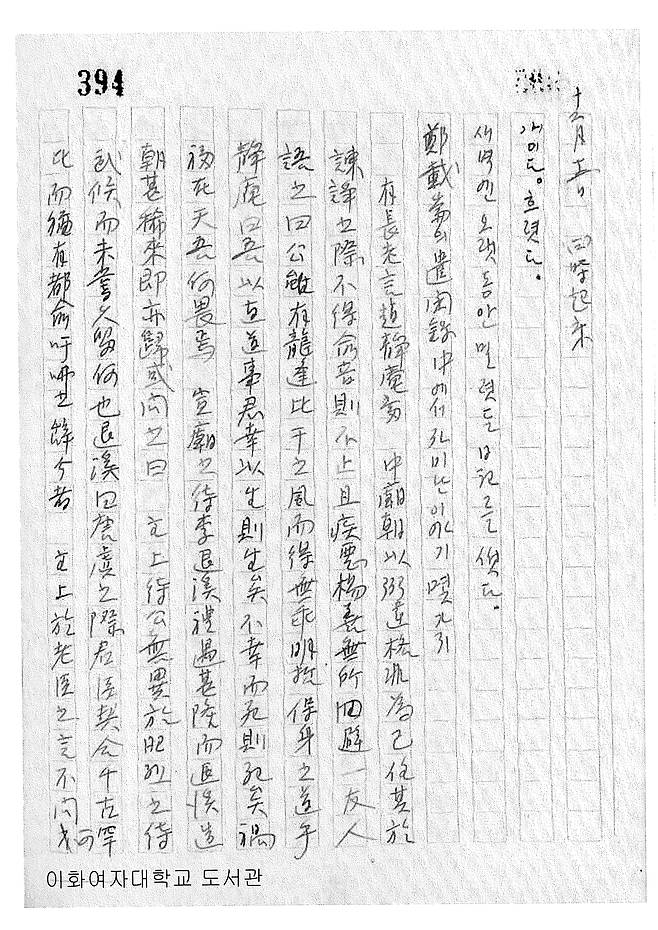 394
十二月 五日 四時起床
개이다. 흐렸다.
새벽엔 오랫동안 밀렸든 日記를 썼다.
鄭載崙의 遣閑錄中에서 자미난 이야기 몇 가지
有長老言趙靜庵 當 中廟朝以弼違格非為己任其於
諫諍之際不得兪音則不止且疾惡揚善無所回避一友人
語之曰公雖有龍逢比干之風而得無乖明哲保身之道乎
靜庵曰吾以直道事君幸以生則生矣不幸而死則死矣禍
福在天吾何畏焉 宣廟之待李退溪禮遇甚隆而退溪造
朝甚稀來即亦歸或问之曰 主上待公無異於昭烈之待
武候而未嘗久留何也退溪曰唐虞之際君臣契合千古罕
比而猶有都兪吁咈 主上於老臣之言不问可
이화여자대학교 도서관